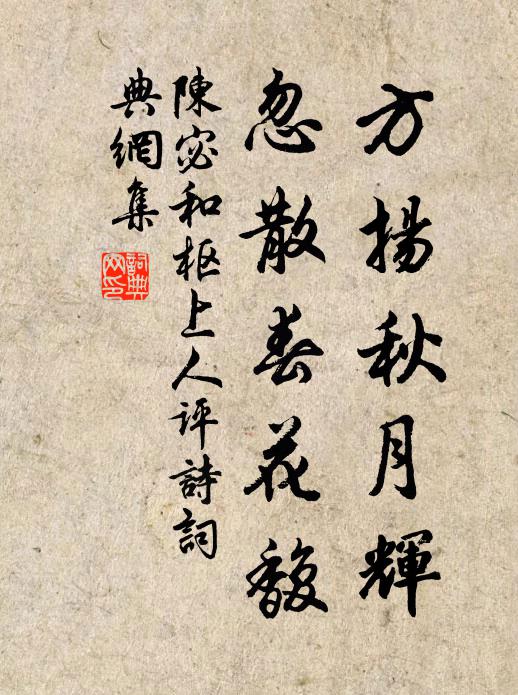 方揚秋月輝
忽散春花馥
陳宓和柩上人評詩詞
典網集
詞典
网印